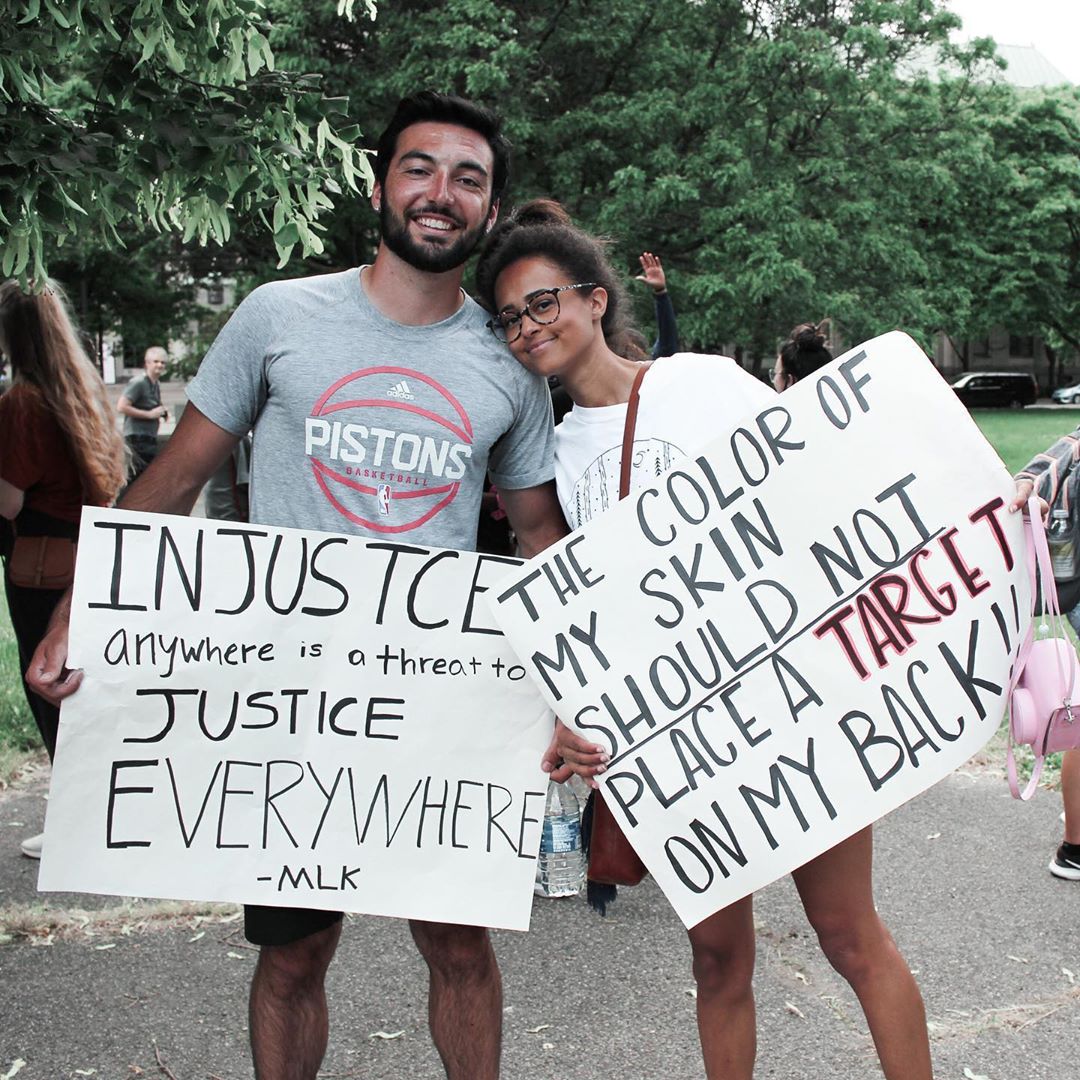 adidas
PISTONS
BASKETBALL
INJUSTCE
anywhere is a threat to
JUSTICE
EVERYWHERE
-MLK
THE COLOR OF
MY SKIN
SHOULD NOT
PLACE A TARGET
ON MY BACK!!